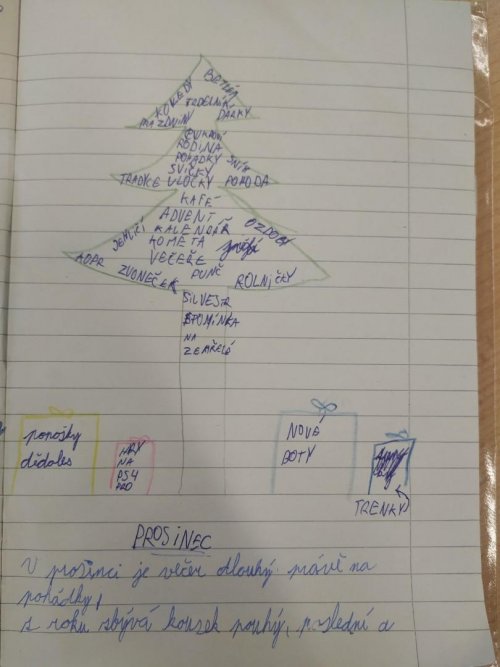 KOLEDY BETLÉM
TRDELNÍK
PRÁZDNINY DÁRKY
CUKROVÍ
RODINA
POHÁDKY SNÍH
SVÍČKY
TRADICE VLOČKY POHODA
KAFÉ
ADVENT
JEHLIČÍ KALENDÁŘ OZDOBY
KOMETA
KAPR VEČEŘE
ZVONEČEK PUNČ ROLNIČKY
SILVESTR
VZPOMÍNKA
NA
ZEMŘELÉ
ponožky
dědoles
HRY
NA
PS4
PRO
NOVÉ
BOTY
TRENKY
PROSINEC
V prosinci je večer dlouhý právě na
pohádky,
z roku zbývá kousek pouhý, poslední a